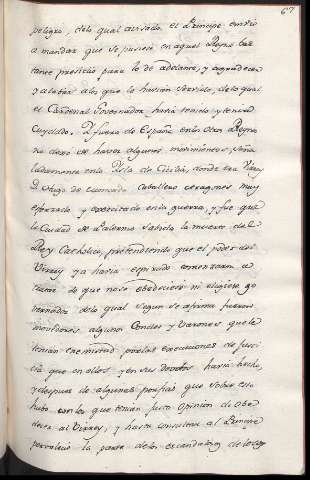 67
peligro, delo qual avisado el Principe embio
a mandar que se pusiese en aquel Reyno bas
tante presidio para lo de adelante, y agradecer
y alabar alos que lo havian servido, delo qual
el Cardenal Governador havia tenido y tenia
cuydado. Y fuera de España en los otros Reynos
no dexo de haver algunos movimientos, seña
ladamente en la Isla de Cicilia, donde era Virrey
D. Hugo de Cavallero aragones muy
esforzado y exercitado en la guerra, y fue que
la Ciudad de Palermo sabida la muerte del
Rey Catholico, pretendiendo que el poder del
Virrey ya havia espirado comenzaron a
tratar de que no se obedeciese ni eligiese go
vernador delo qual segun se afirma fueron
movedores algunos Condes y Varones que le
tenian enemistad por las execuciones de justi
cia que en ellos y en sus deudos havia hecho,
y despues de algunas porfias que sobre esto
hubo con los que tenian justa opinion de obe
decer al Virrey, y hasta consultar al Principe
prevalecio la parte delos escandalosos